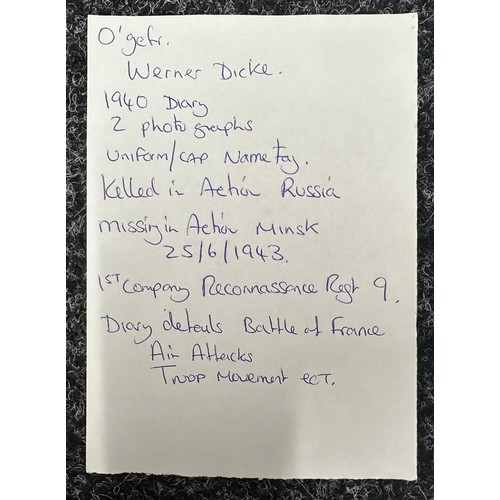 O'gefr.
Werner Dicke.
1940 Diary
2 photographs
Uniform/CAP Name tag.
Killed in Action Russia
Missing in Action Minsk
25/6/1943.
1ST Company Reconnassance Regt 9.
Diary details Battle of France
Air Attacks
Troop Movement ect.